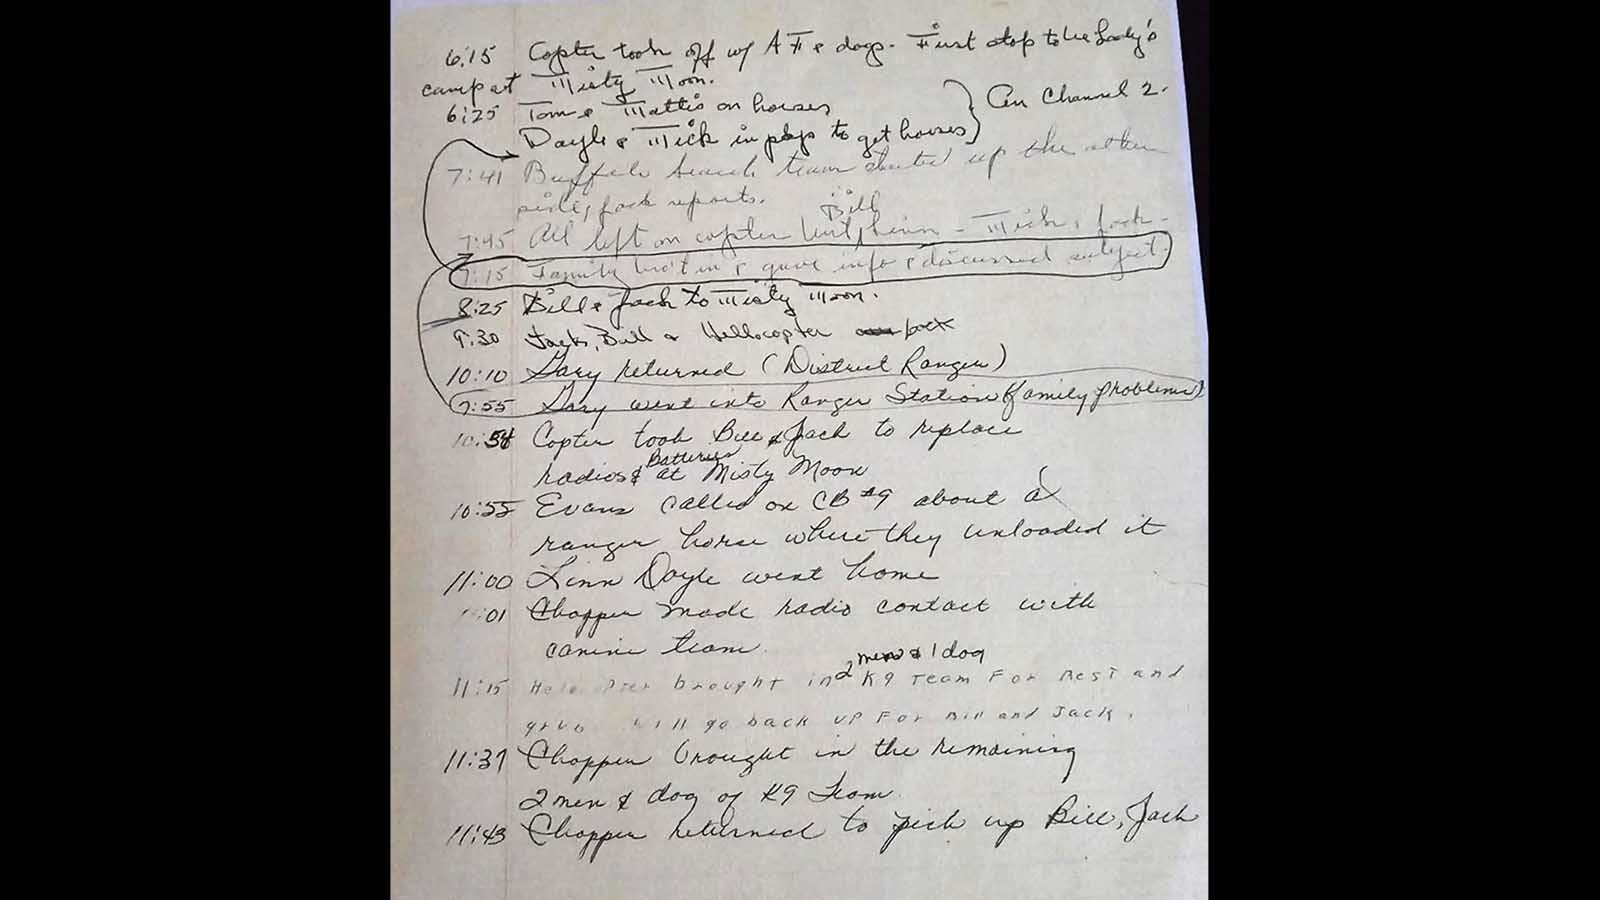 6:15 Copter took off w/ AF & dogs - First stop to the Lady's
camp at Misty Moon.
6:25 Tom & Mattis on horses
On Channel 2.
Doyle & Mick in to get horses
7:41 Buffalo Search team started up the other
side, Jack reports.
Bill
7:45 All left on copter but - Mick, Jack -
7:15 Family in & gave info & discussed subject.
8:25 Bill & Jack to Misty Moon.
9:30 Jack, Bill & Hellocopter back
10:10 Gary returned (District Ranger)
7:55 Gary went into Ranger Station (family problems)
10:54 Copter took Bill & Jack to replace
Batteries
radios & at Misty Moon
10:55 Evans called on CB #9 about a
ranger horse where they unloaded it
11:00 Linn Doyle went home
:01 Chopper made radio contact with
canine team
2 men & 1 dog
11:15 brought in K9 Team For Rest and
grub will go back UP For Bill and Jack.
11:37 Chopper brought in the remaining
2 men & dog of K9 Team
11:43 Chopper returned to pick up Bill, Jack